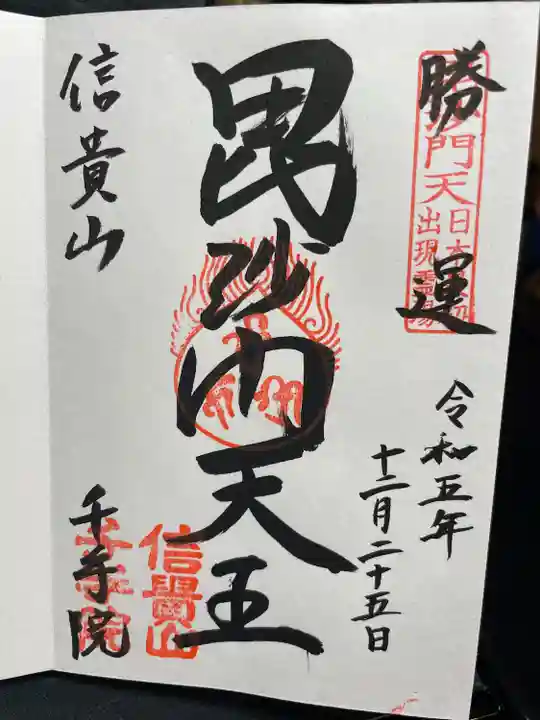 勝運
門天
日本
出現霊場
令和五年
十二月二十五日
毘沙門天王
信貴山
千手院
信貴山